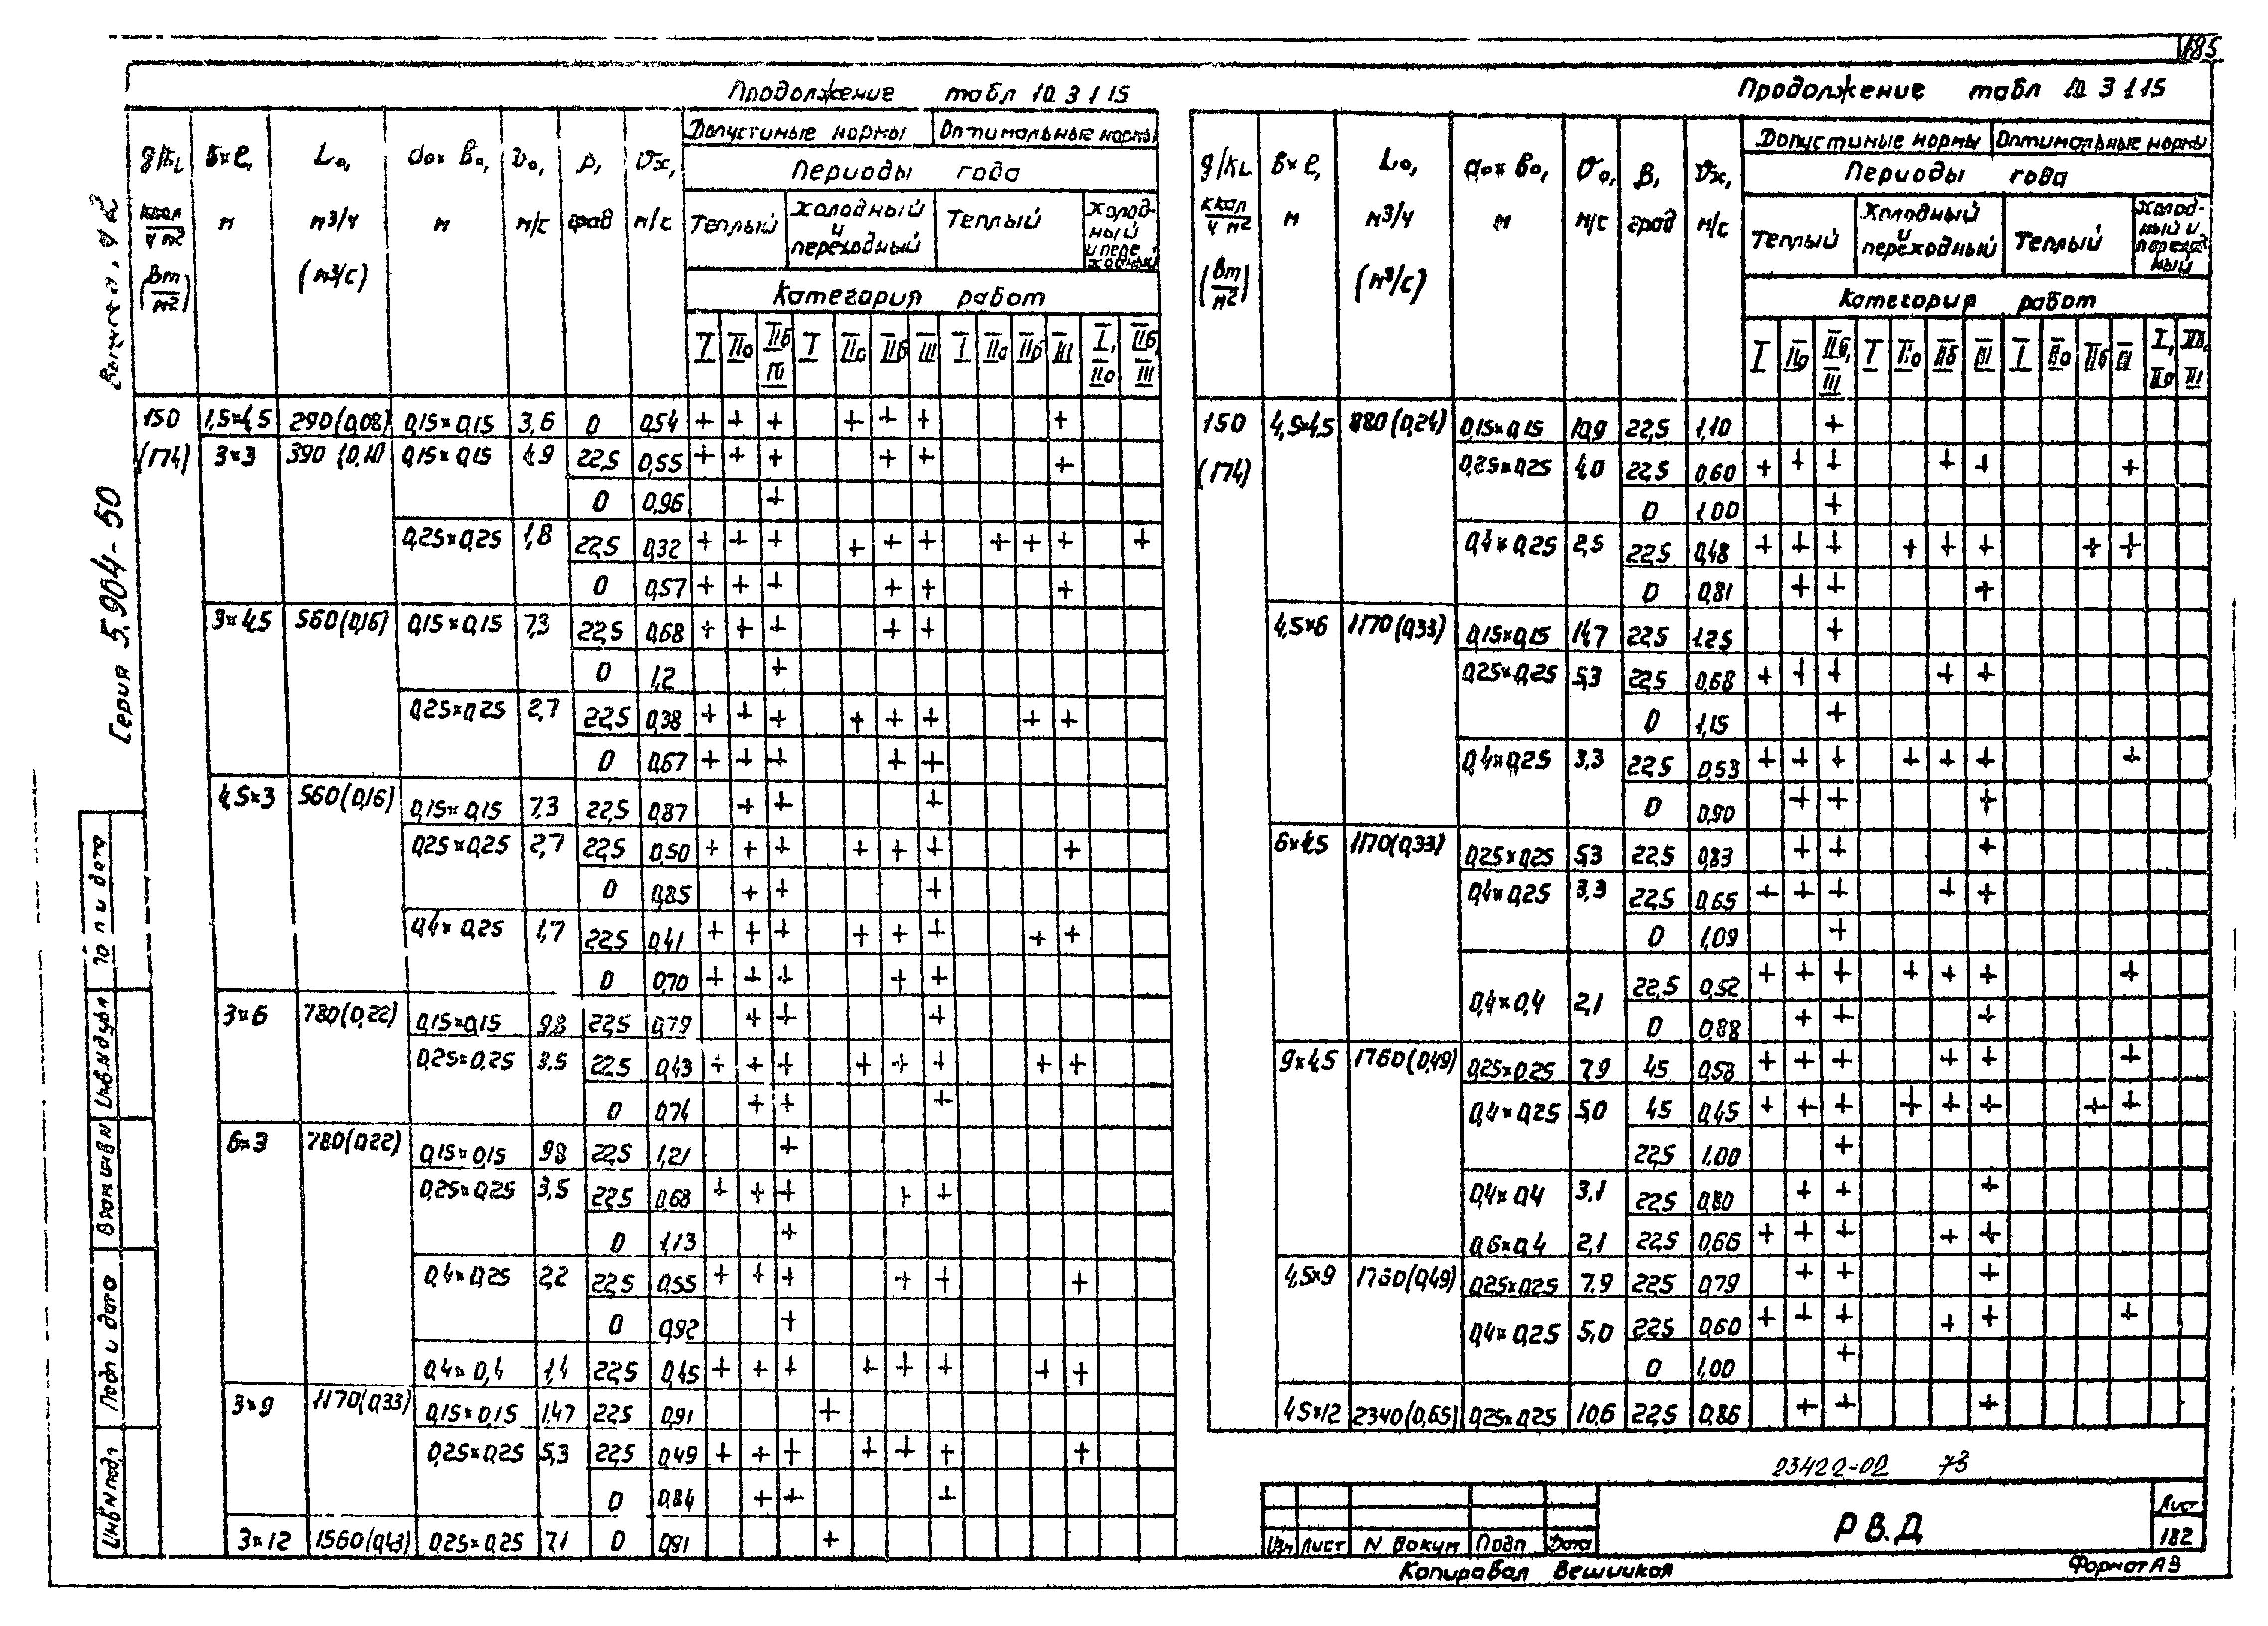 185
Продолжение табл 10.3.1.15
g/kL б×ℓ, Lo, ao×бo, υo, β, υx, Допустимые нормы Оптимальные нормы
Периоды года
ккал/ч м² м м³/ч м м/с град м/с Теплый Холодный и переходный Теплый Холодный и переходный
(Вт/м²) (м³/с)
Категория работ
I IIа IIб, III I IIа IIб III I IIа IIб III I, IIа IIб, III
150 1,5×4,5 290(0,08) 0,15×0,15 3,6 0 0,54 + + + + + + +
(174) 3×3 390 (0,11) 0,15×0,15 4,9 22,5 0,55 + + + + + +
0 0,96 +
0,25×0,25 1,8 22,5 0,32 + + + + + + + + + +
0 0,57 + + + + + +
3×4,5 560(0,16) 0,15×0,15 7,3 22,5 0,68 + + + + +
0 1,2 +
0,25×0,25 2,7 22,5 0,38 + + + + + + + +
0 0,67 + + + + +
4,5×3 560(0,16) 0,15×0,15 7,3 22,5 0,87 + + +
0,25×0,25 2,7 22,5 0,50 + + + + + + +
0 0,85 + + +
0,4×0,25 1,7 22,5 0,41 + + + + + + + +
0 0,70 + + + + +
3×6 780(0,22) 0,15×0,15 9,8 22,5 0,79 + + +
0,25×0,25 3,5 22,5 0,43 + + + + + + + +
0 0,74 + + +
6×3 780(0,22) 0,15×0,15 9,8 22,5 1,21 +
0,25×0,25 3,5 22,5 0,68 + + + + +
0 1,13 +
0,4×0,25 2,2 22,5 0,55 + + + + + +
0 0,92 +
0,4×0,4 1,4 22,5 0,45 + + + + + + + +
3×9 1170(0,33) 0,15×0,15 1,47 22,5 0,91 +
0,25×0,25 5,3 22,5 0,49 + + + + + + +
0 0,84 + + +
3×12 1560(0,43) 0,25×0,25 7,1 0 0,91 +
Продолжение табл 10.3.1.15
g/kL б×ℓ, Lo, ao×бo, υo, β, υx, Допустимые нормы Оптимальные нормы
Периоды года
ккал/ч м² м м³/ч м м/с град м/с Теплый Холодный и переходный Теплый Холодный и переходный
(Вт/м²) (м³/с)
Категория работ
I IIа IIб, III I IIа IIб III I IIа IIб III I, IIа IIб, III
150 4,5×4,5 880(0,24) 0,15×0,15 10,9 22,5 1,10 +
(174) 0,25×0,25 4,0 22,5 0,60 + + + + + +
0 1,00 +
0,4×0,25 2,5 22,5 0,48 + + + + + + + +
0 0,81 + + +
4,5×6 1170(0,33) 0,15×0,15 14,7 22,5 1,25 +
0,25×0,25 5,3 22,5 0,68 + + + + +
0 1,15 +
0,4×0,25 3,3 22,5 0,53 + + + + + + +
0 0,90 + + +
6×4,5 1170(0,33) 0,25×0,25 5,3 22,5 0,83 + + +
0,4×0,25 3,3 22,5 0,65 + + + + +
0 1,09 +
0,4×0,4 2,1 22,5 0,52 + + + + + + +
0 0,88 + + +
9×4,5 1760(0,49) 0,25×0,25 7,9 45 0,58 + + + + + +
0,4×0,25 5,0 45 0,45 + + + + + + + +
22,5 1,00 +
0,4×0,4 3,1 22,5 0,80 + + +
0,6×0,4 2,1 22,5 0,66 + + + + +
4,5×9 1760(0,49) 0,25×0,25 7,9 22,5 0,79 + + +
0,4×0,25 5,0 22,5 0,60 + + + + + +
0 1,00 +
4,5×12 2340(0,65) 0,25×0,25 10,6 22,5 0,86 + + +
23422-02 73
РВ.Д
Лист
182
Изм Лист N Докум Подп Дата
Копировал
Формат А3
Серия 5.904-50 Выпуск 0, ч 2
Инв N подл Подп и дата Взам инв N Инв. N дубл Подп и дата